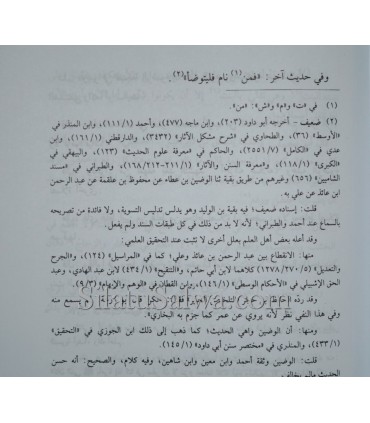 وفي حديث آخر: «فمن(١) نام فليتوضأ»(٢).
(١) في «ت» و«م» و«ش»: «من».
(٢) ضعيف - أخرجه أبو داود (٢٠٣)، وابن ماجه (٤٧٧)، وأحمد (١١١/١)، وابن المنذر في
«الأوسط» (٣٦)، والطحاوي في «شرح مشكل الآثار» (٣٤٣٢)، والدارقطني (١٦١/١)، وابن
عدي في «الكامل» (٢٥٥١/٧)، والحاكم في «معرفة علوم الحديث» (١٢٣)، والبيهقي في
«الكبرى» (١١٨/١)، و«معرفة السنن والآثار» (٢١١/١-١٦٨/٢١٢)، والطبراني في «مسند
الشاميين» (٦٥٦) وغيرهم من طريق بقية ثنا الوضين بن عطاء عن محفوظ بن علقمة عن عبد الرحمن
ابن عائذ عن علي به.
قلت: إسناده ضعيف؛ فيه بقية بن الوليد وهو يدلس تدليس التسوية، ولا فائدة من تصريحه
بالسماع عند أحمد والطبراني؛ لأنه لا بد من ذلك في كل طبقات السند ولم يفعل.
وقد أعله بعض أهل العلم بعلل أخرى لا تثبت عند التحقيق العلمي:
منها: الانقطاع بين عبد الرحمن بن عائذ وعلي؛ كما في «المراسيل» (١٢٤)، و«الجرح
والتعديل» (١٢٧٨/٢٧٠/٥) كلاهما لابن أبي حاتم، و«التنقيح» (٤٣٤/١) لابن عبد الهادي، وعبد
الحق الإشبيلي في «الأحكام الوسطى» (١٤٦/١)، وابن القطان في «الوهم والإيهام» (٩/٣).
وقد رده الحافظ ابن حجر في «التلخيص
وفي هذا النفي نظر لأنه يروي عن عمر كما جزم به البخاري».
ومنها: أن الوضين واهي الحديث؛ كما ذهب إلى ذلك ابن الجوزي في «التحقيق»
(٤٣٣/١)، والمنذري في «مختصر سنن أبي داود» (١٤٥/١).
قلت: الوضين وثقه أحمد وابن معين وابن شاهين، وفيه كلام، والصحيح: أنه حسن
الحديث مالم يخالف.